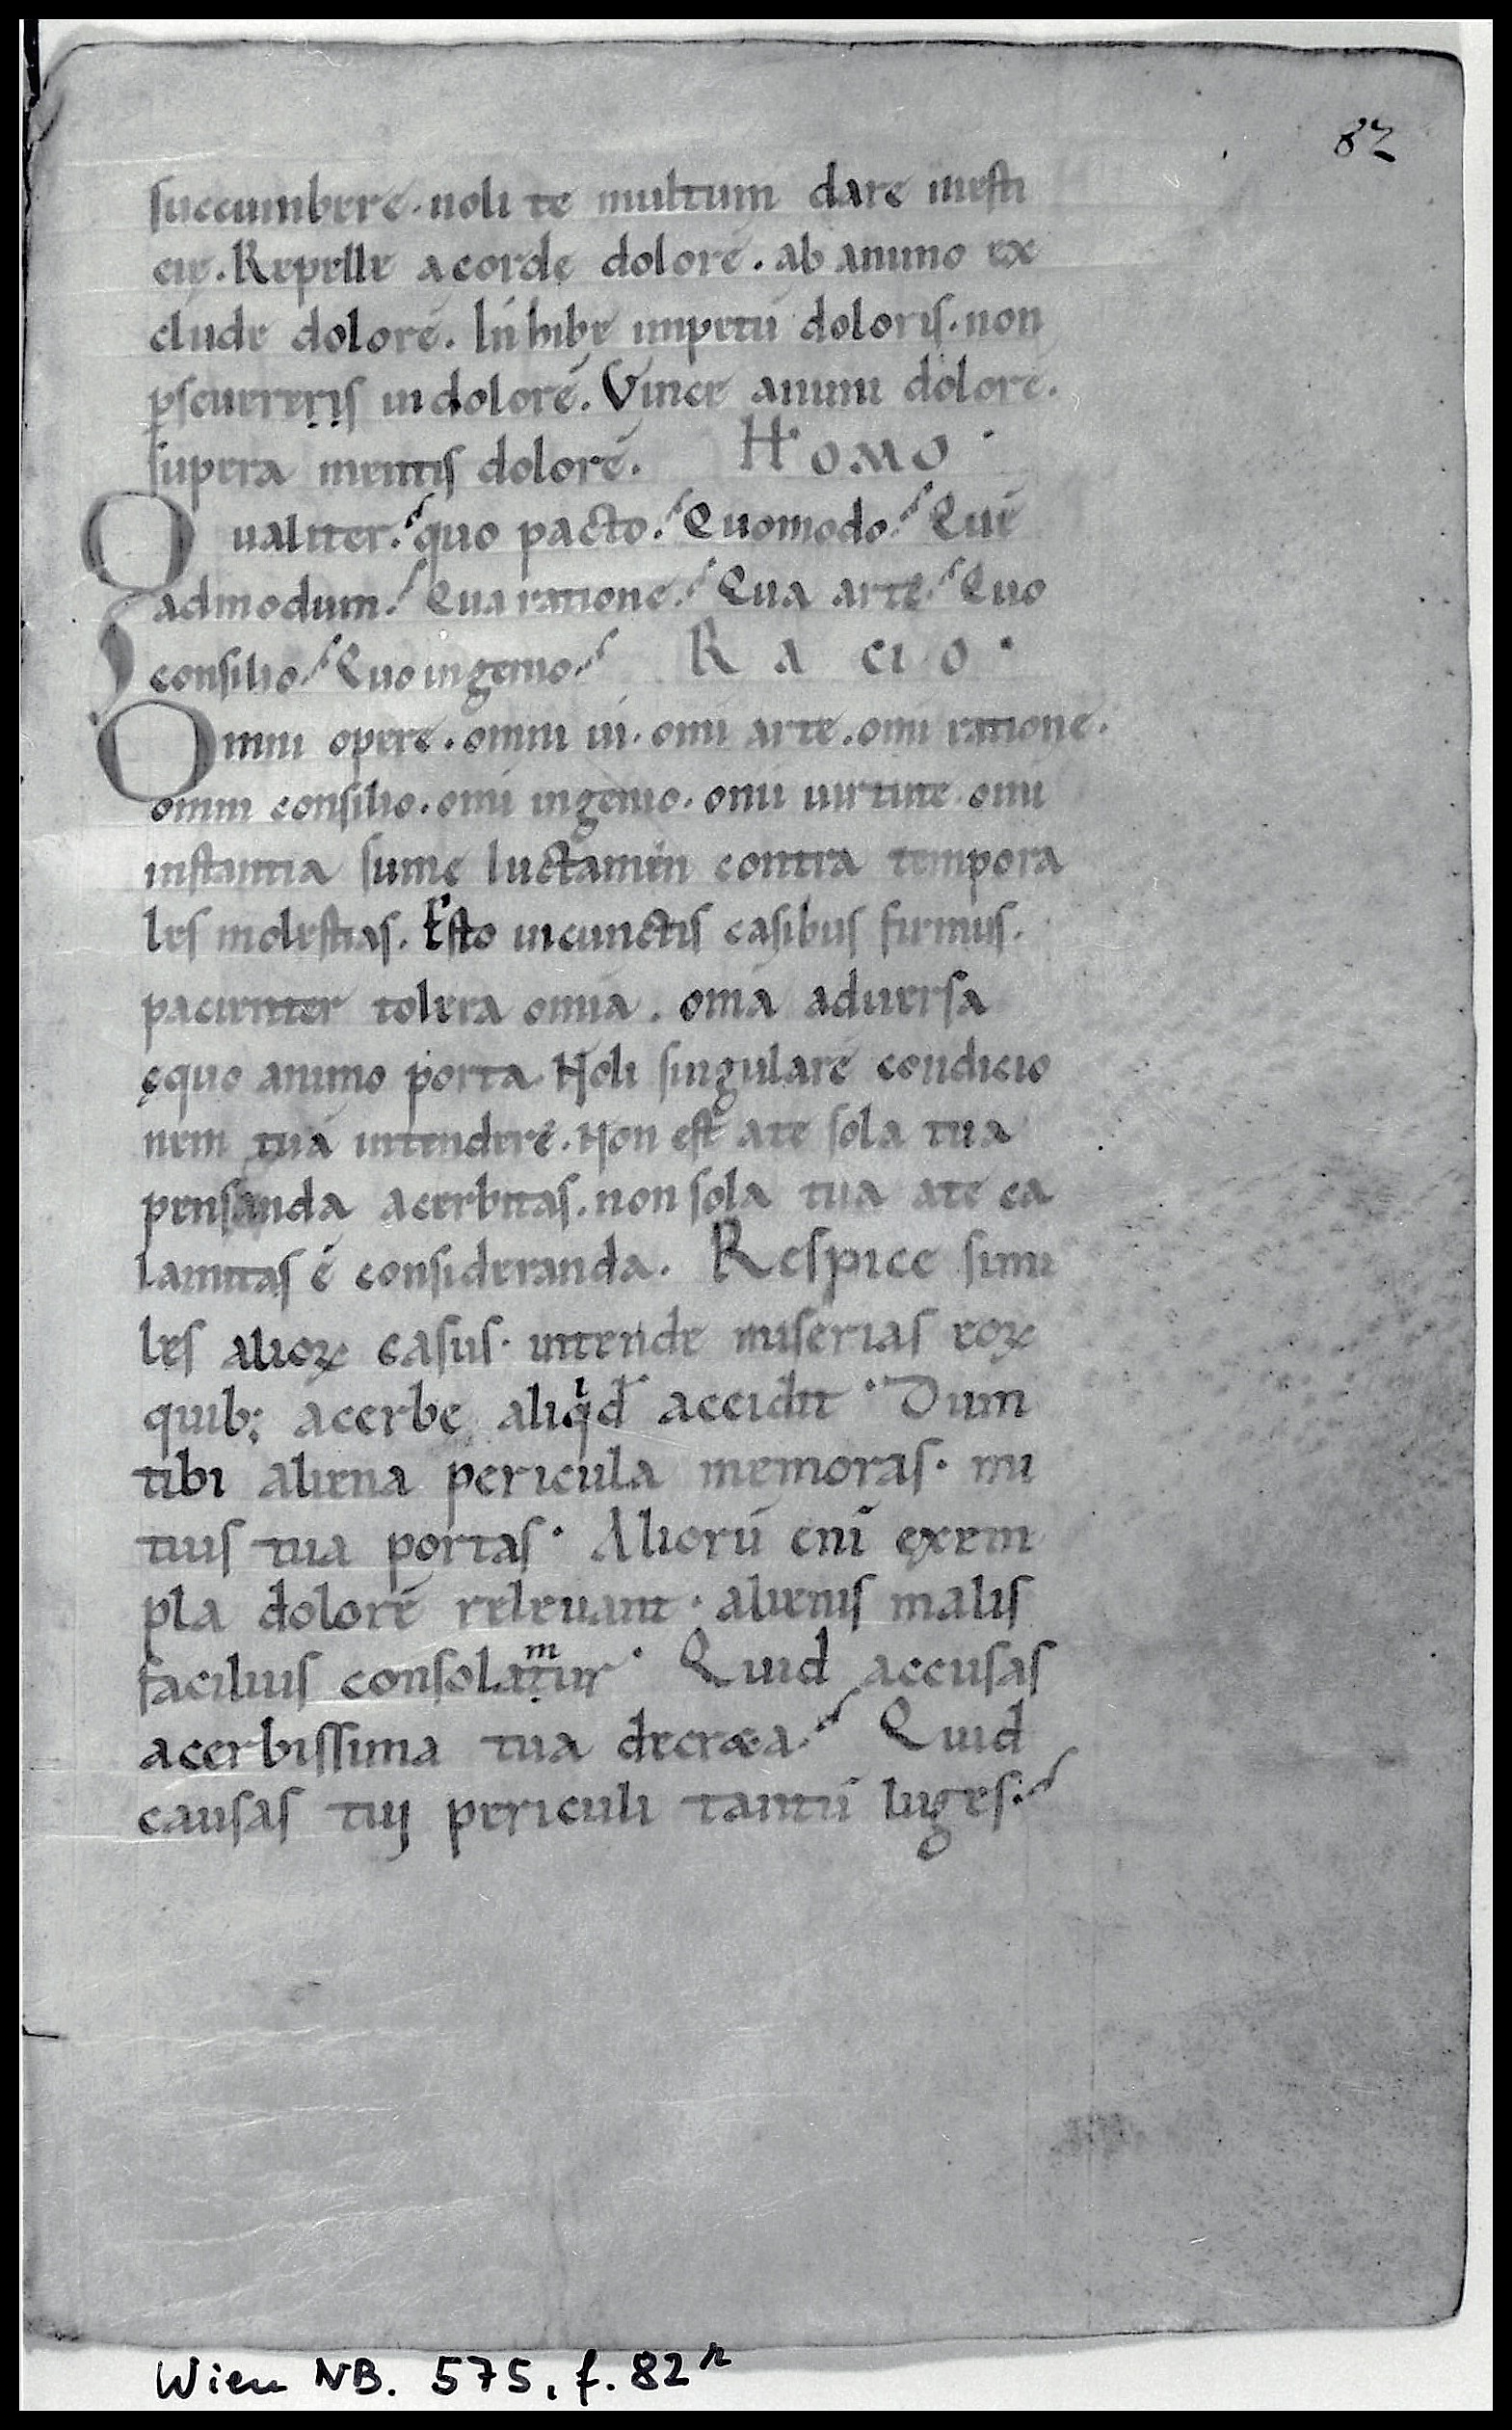 82
succumbere. noli te multum dare mesti
cię. Repelle a corde dolorē. ab animo ex
clude dolorē. Inhibe impetū doloris. non
pseuereris in dolorē. Vince animi dolorē.
supera mentis dolorē. HOMO
Qualiter? quo pacto? Quomodo? Quē
admodum? Qua ratione? Qua arte? Quo
consilio? Quo ingenio? RACIO
Omni opere. omni ui. omī arte. omī ratione.
omni consilio. omī ingenio. omī uirtute. omī
instantia sume luctamen contra tempora
les molestias. Esto in cunctis casibus firmus.
pacienter tolera omīa. omīa aduersa
ęquo animo porta. Noli singularē condicio
nem tuā intendere. Non est a te sola tua
pensanda acerbitas. non sola tua a te ca
lamitas ē consideranda. Respice simi
les alioꝝ casus. intende miserias eoꝝ
quib; acerbe aliqͥd accidit. Dum
tibi aliena pericula memoras. mi
tius tua portas. Aliorū eni exem
pla dolorē releuant. alienis malis
facilius consolatᵐur. Quid accusas
acerbissima tua decreta? Quid
causas tuj periculi tantū luges?
Wien NB. 575, f. 82ʳ